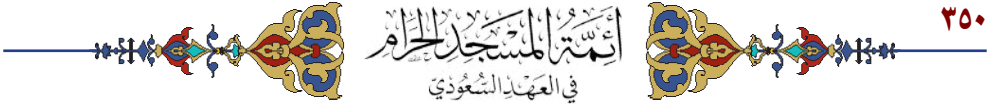 ٣٥٠
أَئِمَّةُ المَسْجِدِ الحَرَامِ
في العَهْدِ السُّعُودِيّ